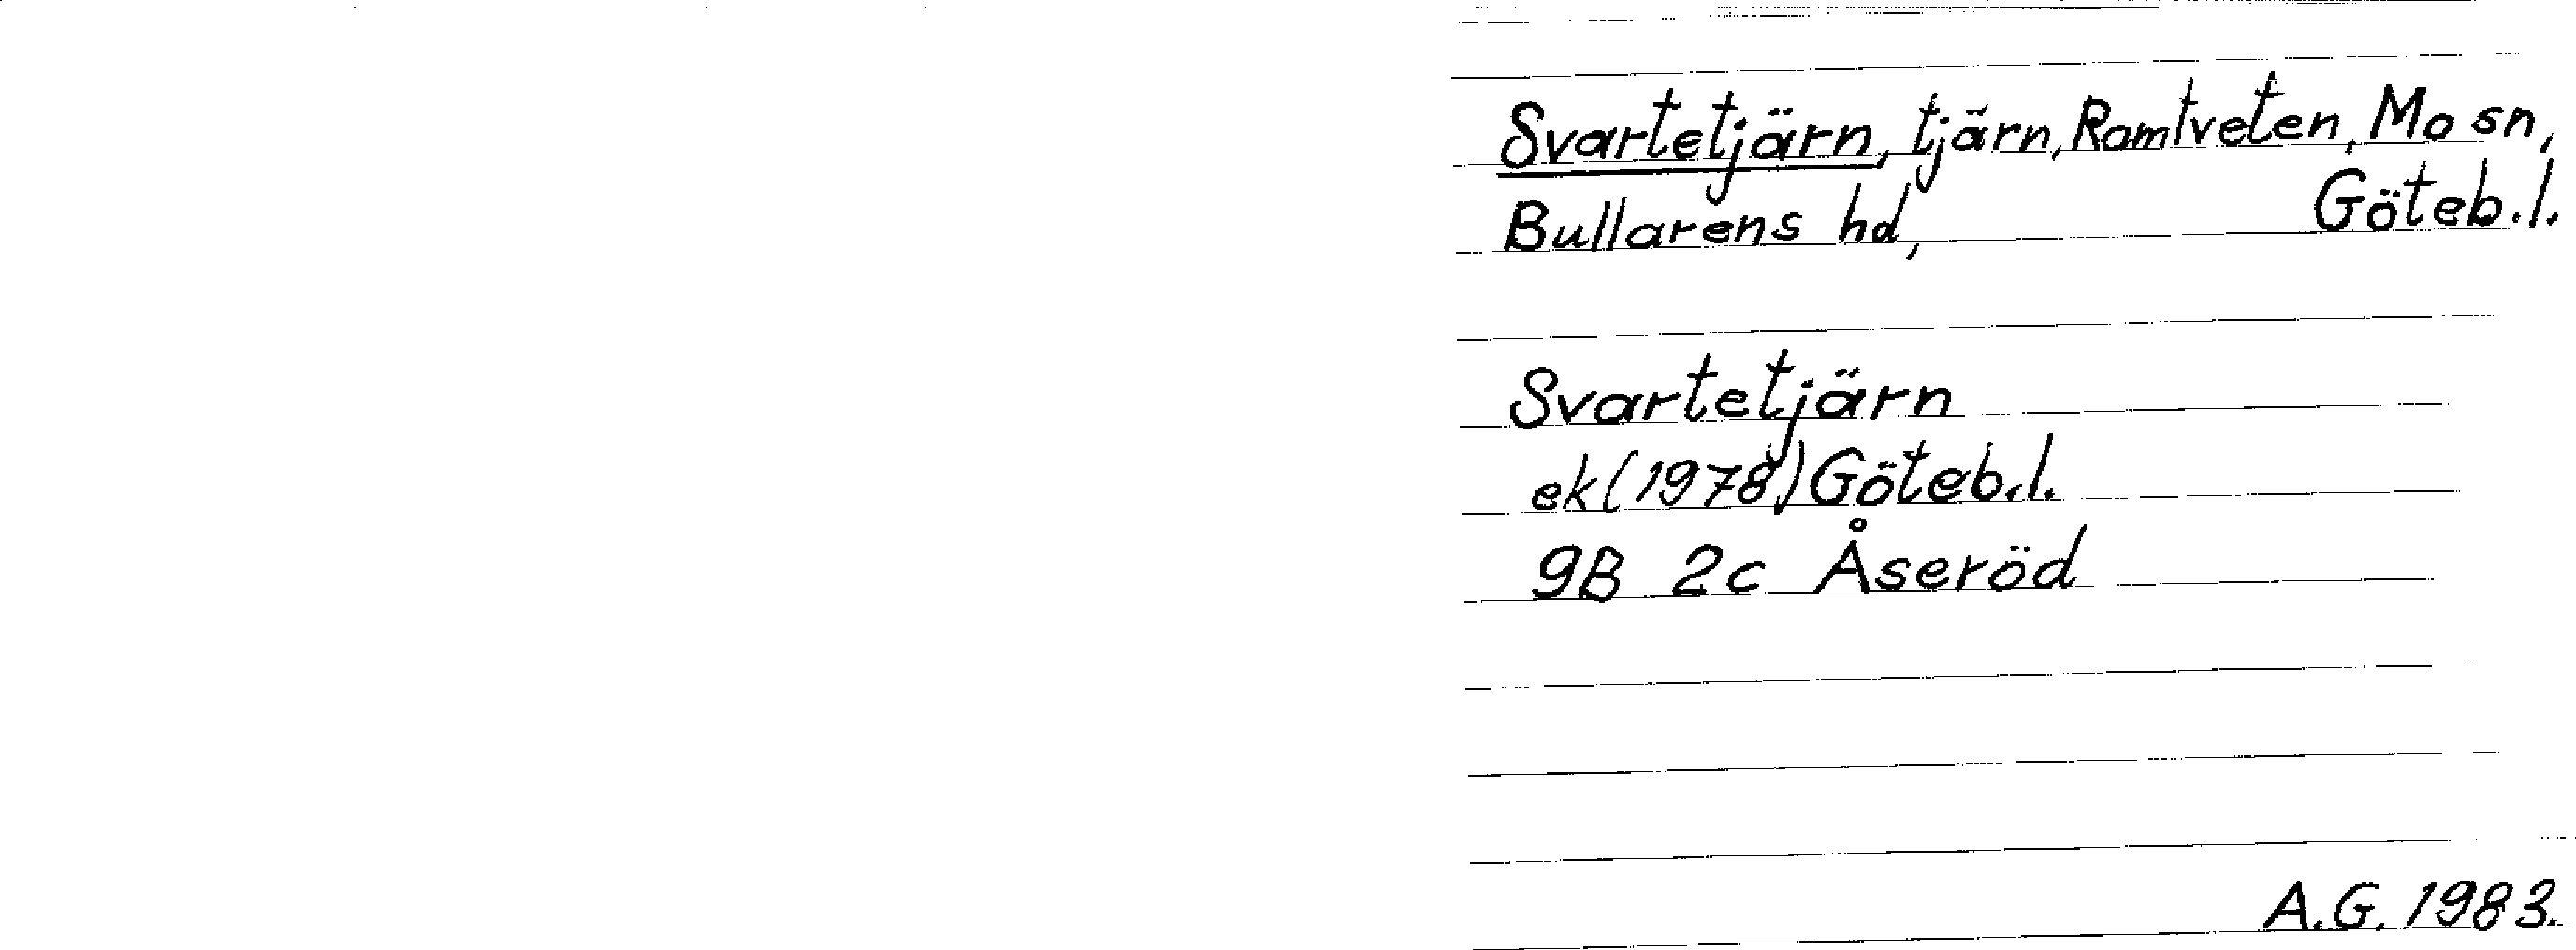 Svartetjärn, tjärn, Romtveten, Mo sn,
Bullarens hd, Göteb.l.
Svartetjärn
ek(1978) Göteb.l.
9B 2c Åseröd
A.G. 1983.